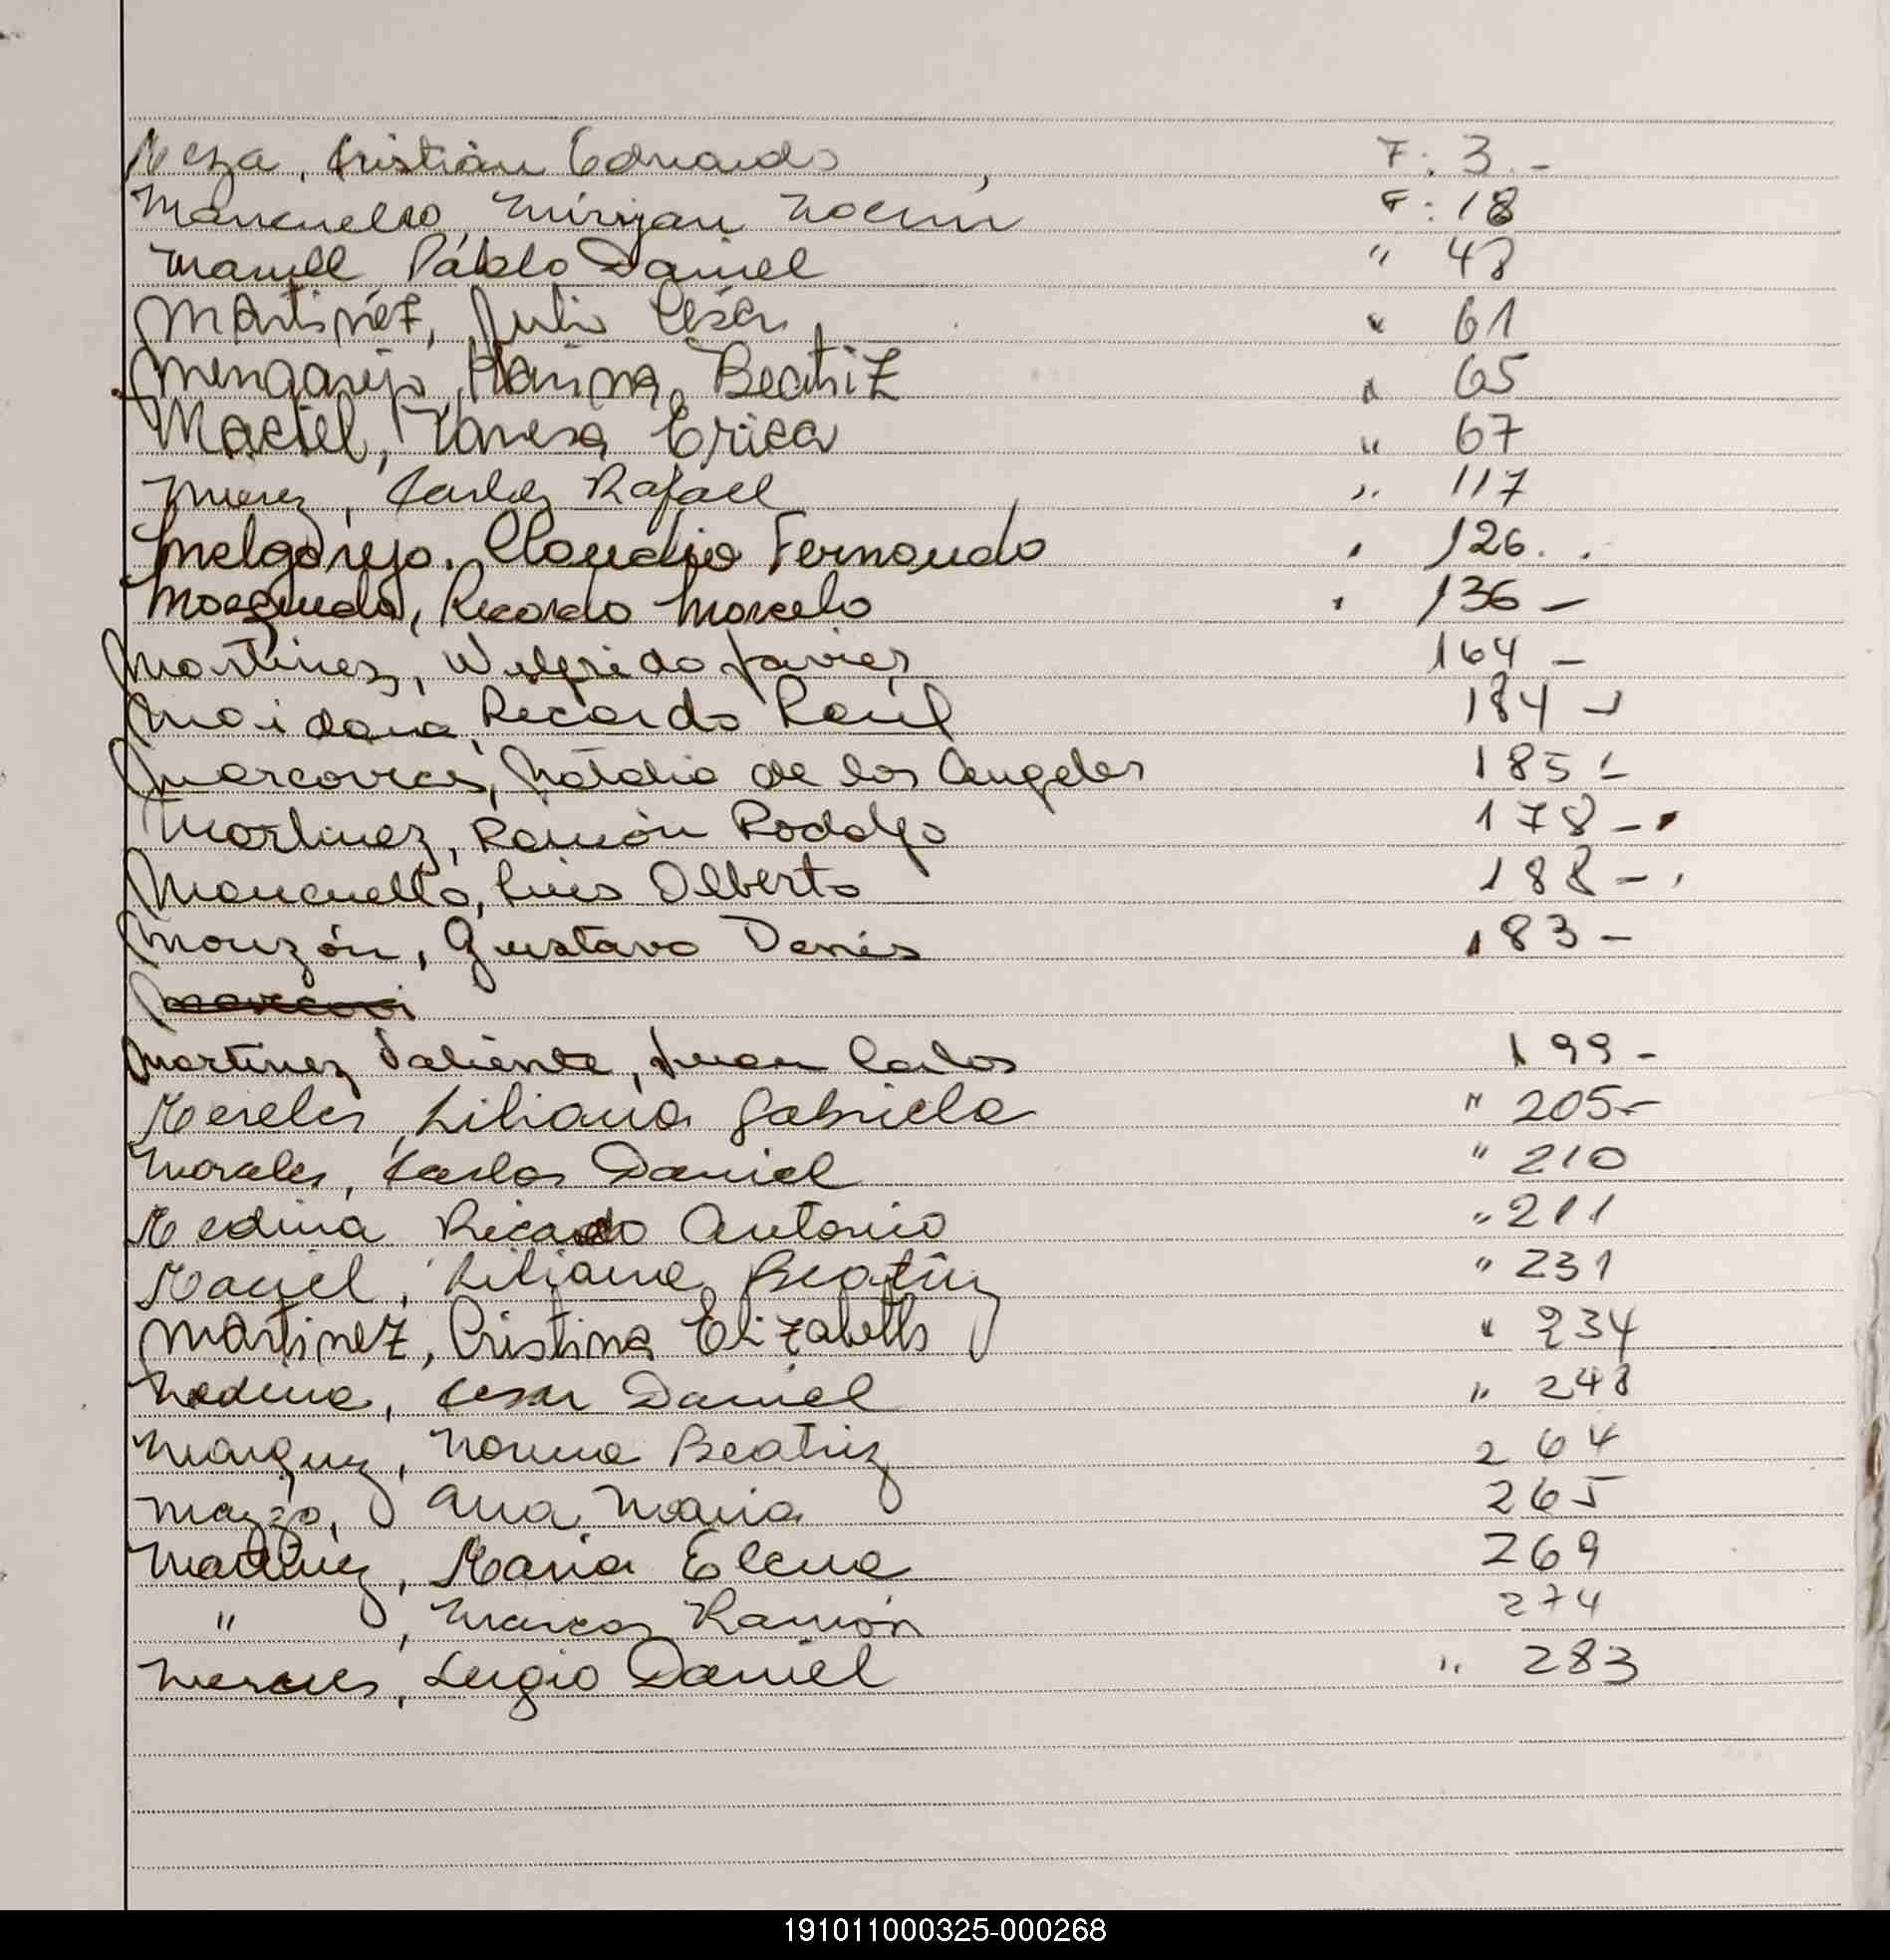 Meza, Cristián Eduardo, F: 3.-
Mancuello, Miriyan Noemi F: 18
Maciell Pablo Daniel " 48
Martinéz, Julio César " 61
Mengarejo, Karina Beatriz " 65
Maciel, Vanesa Erica " 67
Carlos Rafael " 117
Melgarejo. Claudio Fernando " 126.
Ricardo Marcelo " 136 -
Martinez, Wilfrido Javier 164 -
Maidana, Ricardo Raúl 184 -
Natalia de los Angeles 185 -
Martinez, Ramón Rodolfo 178 -
Mancuello, Luis Alberto 188 -
Monzón, Gustavo Denis 183 -
Martinez Valiente, Juan Carlos 199 -
Mereles, Liliana Gabriela " 205 -
Morales, Carlos Daniel " 210
Medina Ricardo Antonio " 211
Maciel, Liliana Beatriz " 231
Martinez, Cristina Elizabeth " 234
Medina, Cesar Daniel " 248
Marquez, Norma Beatriz 264
Mazzo, Ana Maria 265
Martinez, Maria Elena 269
" , Marcos Ramón 274
Sergio Daniel " 283
191011000325-000268